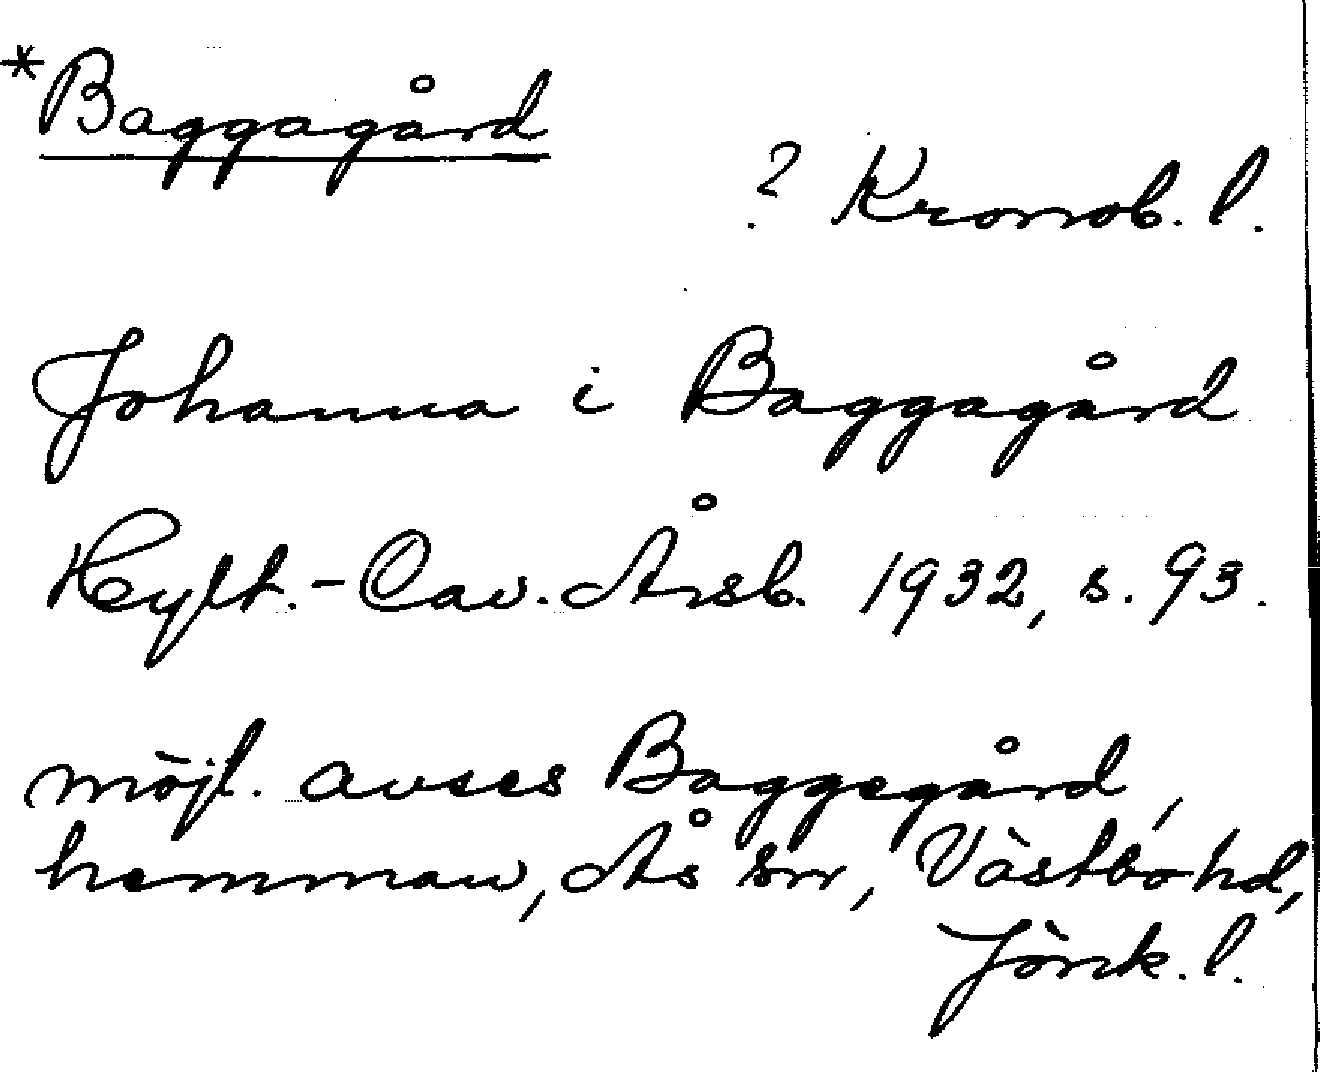 *Baggagård
? Kronob. l.
Johanna i Baggagård
Hylt.-Cav. Årsb. 1932, s. 93.
möjl. avses Baggegård,
hemman, Ås sn, Västbo hd,
Jönk. l.